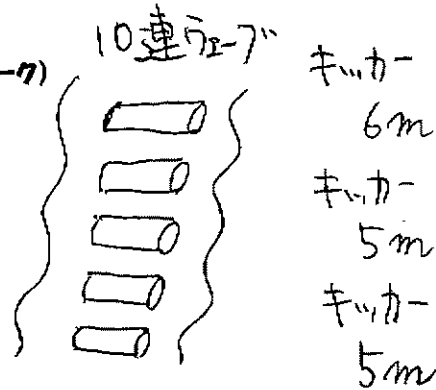 ーク)
10連ウェーブ
キッカー
6m
キッカー
5m
キッカー
5m